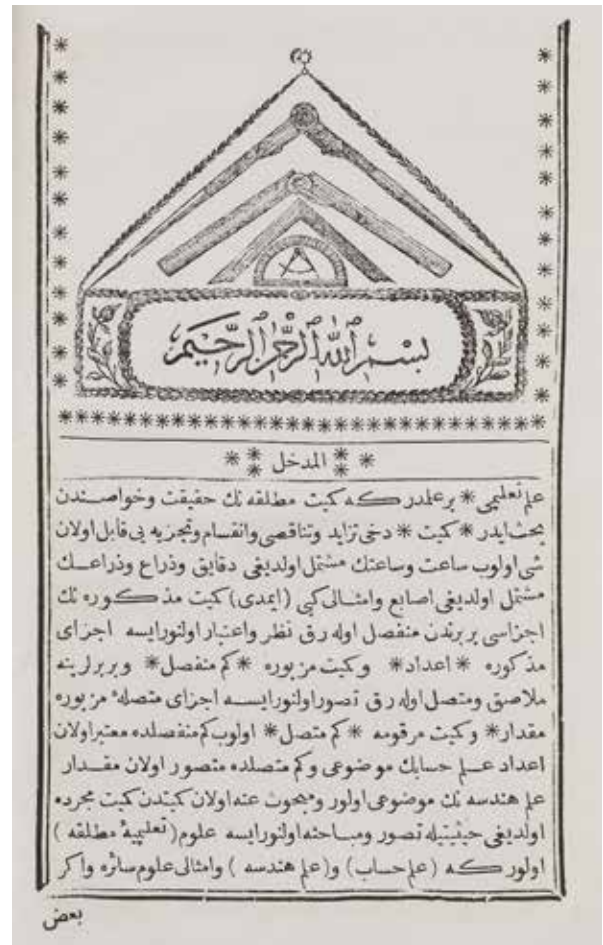 بسم الله الرحمن الرحيم
* المدخل *
علم تعليمى * بر علمدر كه كميت مطلقه نك حقيقت وخواصندن
بحث ايدر * كميت * دخى تزايد وتناقصى وانقسام وتجزيه يى قابل اولان
شى اولوب ساعت وساعتك مشتمل اولديغى دقايق وذراع وذراعك
مشتمل اولديغى اصابع وامثالى كبى (ايمدى) كميت مذكوره نك
اجزاسى بربرندن منفصل اوله رق نظر واعتبار اولنورايسه اجزاى
مذكوره * اعداد * وكميت مزبوره * كم منفصل * وبربرلرينه
ملاصق ومتصل اوله رق تصور اولنورايسه اجزاى متصلهٔ مزبوره
مقدار * وكميت مرقومه * كم متصل * اولوب كم منفصلده معتبر اولان
اعداد علم حسابك موضوعى وكم متصلده متصور اولان مقدار
علم هندسه نك موضوعى اولور ومبحوث عنه اولان كميتدن كميت مجرده
اولديغى حيثيتيله تصور ومباحثه اولنورايسه علوم (تعليميهٔ مطلقه)
اولور كه (علم حساب) و(علم هندسه) وامثالى علوم سائره واكر
بعض